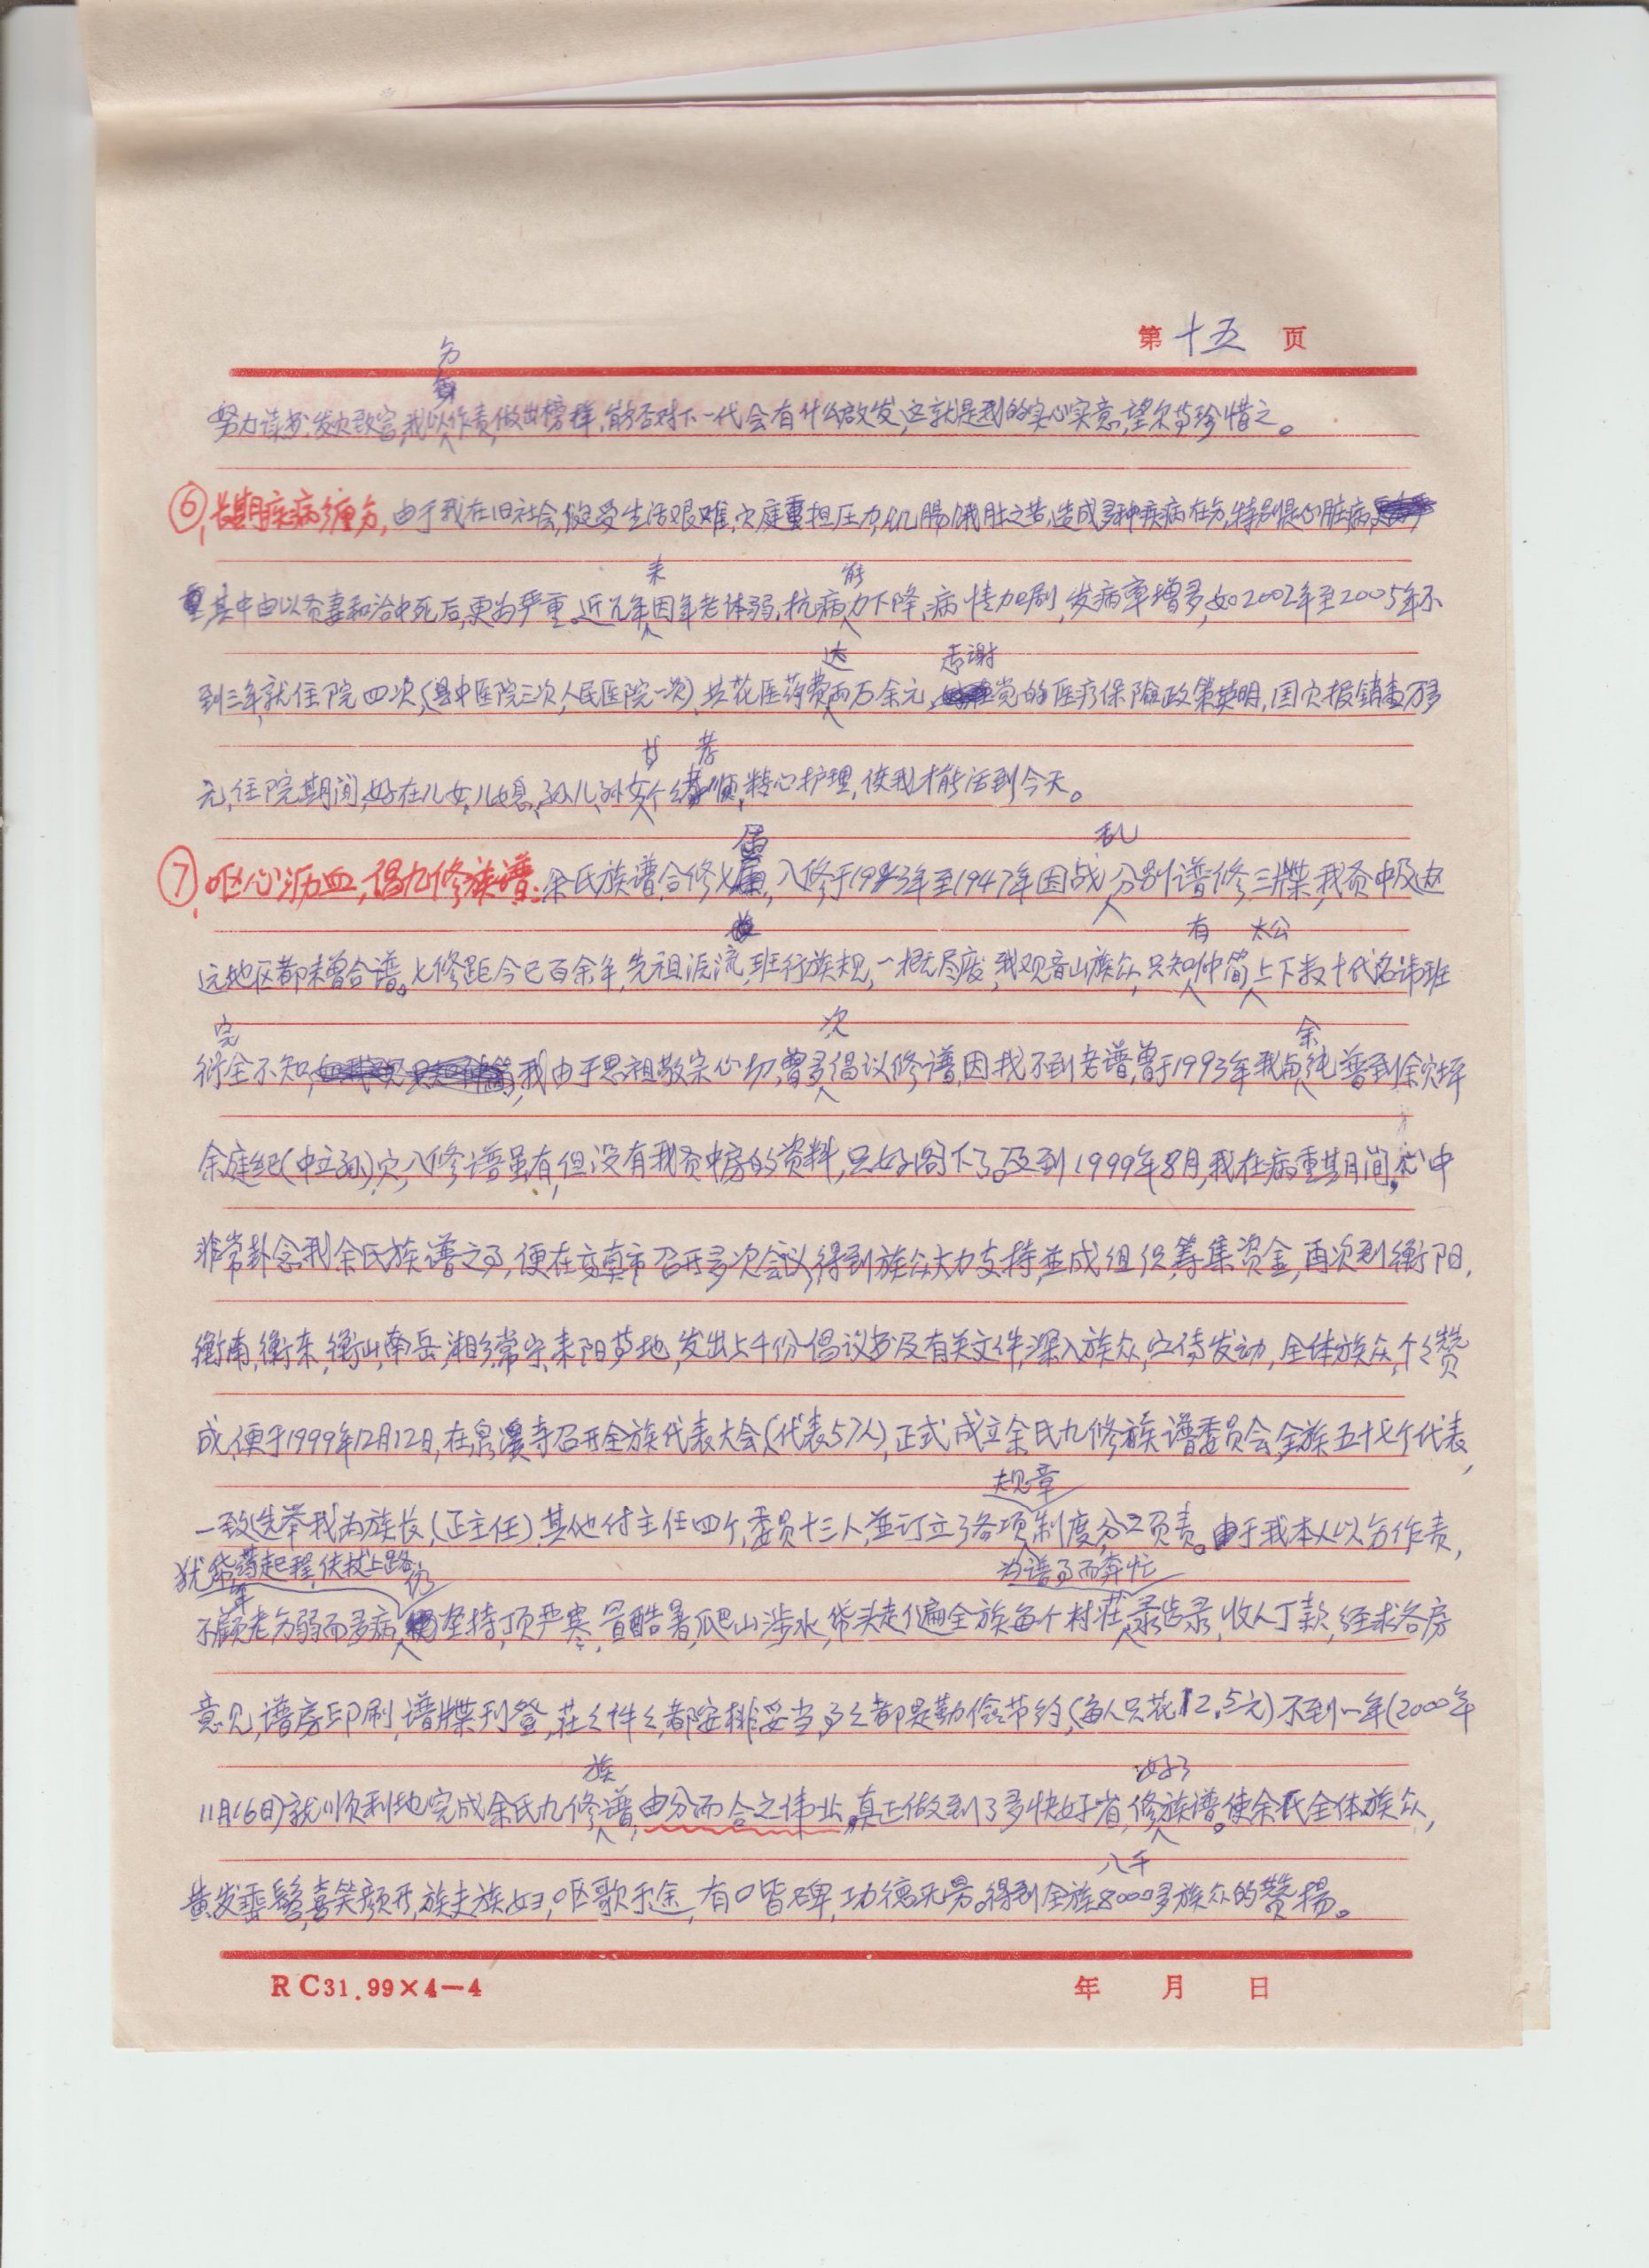 第十五页
努力读书,发家致富,我以身作责,做出榜样,能否对下一代会有什么啟发,这就是我的实心实意,望尔等珍惜之。
⑥,长期疾病缠身,由于我在旧社会,饱受生活艰难,家庭重担压力,饥肠饿肚之苦,造成多种疾病在身,特别是心脏病
重,其中由以贤妻和洽中死后,更为严重。近几年来因年老体弱,抗病能力下降,病情加剧,发病率增多,如2002年至2005年不
到三年,就住院四次,(县中医院三次,人民医院一次)共花医药费达两万余元,志谢党的医疗保险政策英明,国家报销壹万多
元,住院期间,好在儿女,儿媳、孙儿、孙女个个孝顺,精心护理,使我才能活到今天。
⑦,呕心沥血,倡九修族谱:余氏族谱合修七届,八修于1943年至1947年因战乱分别谱修三牒,我贤中及边
远地区都未曾合谱。七修距今已百余年,先祖派流,班行族规,一概尽废,我观音山族众,只知有仲简太公上下数十代名讳班
衍完全不知,我由于思祖敬宗心切,曾多次倡议修谱,因找不到老谱,曾于1993年我与余纯普到余家坪
余庭纪(中立孙)家,八修谱虽有,但没有我贤中房的资料,只好阁下了。及到1999年8月,我在病重其月间,心中
非常卦念我余氏族谱之事,便在高真市召开多次会议,得到族众大力支持,並成组织,筹集资金,再次到衡阳,
衡南,衡东,衡山,南岳,湘乡,常宁,耒阳等地,发出上千份倡议书及有关文件,深入族众,宣传发动,全体族众,个个赞
成,便于1999年12月12日,在泉溪寺召开全族代表大会,(代表57人),正式成立余氏九修族谱委员会,全族五十七个代表,
一致选举我为族长,(正主任)其他付主任四个,委员十三人,並订立了各项规章制度,分工负责。由于我本人以身作责,
不顾年老身弱而多病,犹带药起程,伕拔上路,仍坚持,顶严寒,冒酷暑,爬山涉水,带头走遍全族每个村莊,为谱事而奔忙,录齿录,收人丁款,经求各房
意见,谱房印刷,谱牒刊登,莊莊件件,都安排妥当,事事都是勤俭节约,(每人只花12.5元)不到一年(2000年
11月16日)就顺利地完成余氏九修族谱,由分而合之伟业,真正做到了多快好省,修好了族谱。使余氏全体族众,
黄发垂髫,喜笑颜开,族夫族妇,呕歌于途,有口皆碑,功德无量。得到全族八千8000多族众的赞揚。
RC31.99×4—4 年 月 日